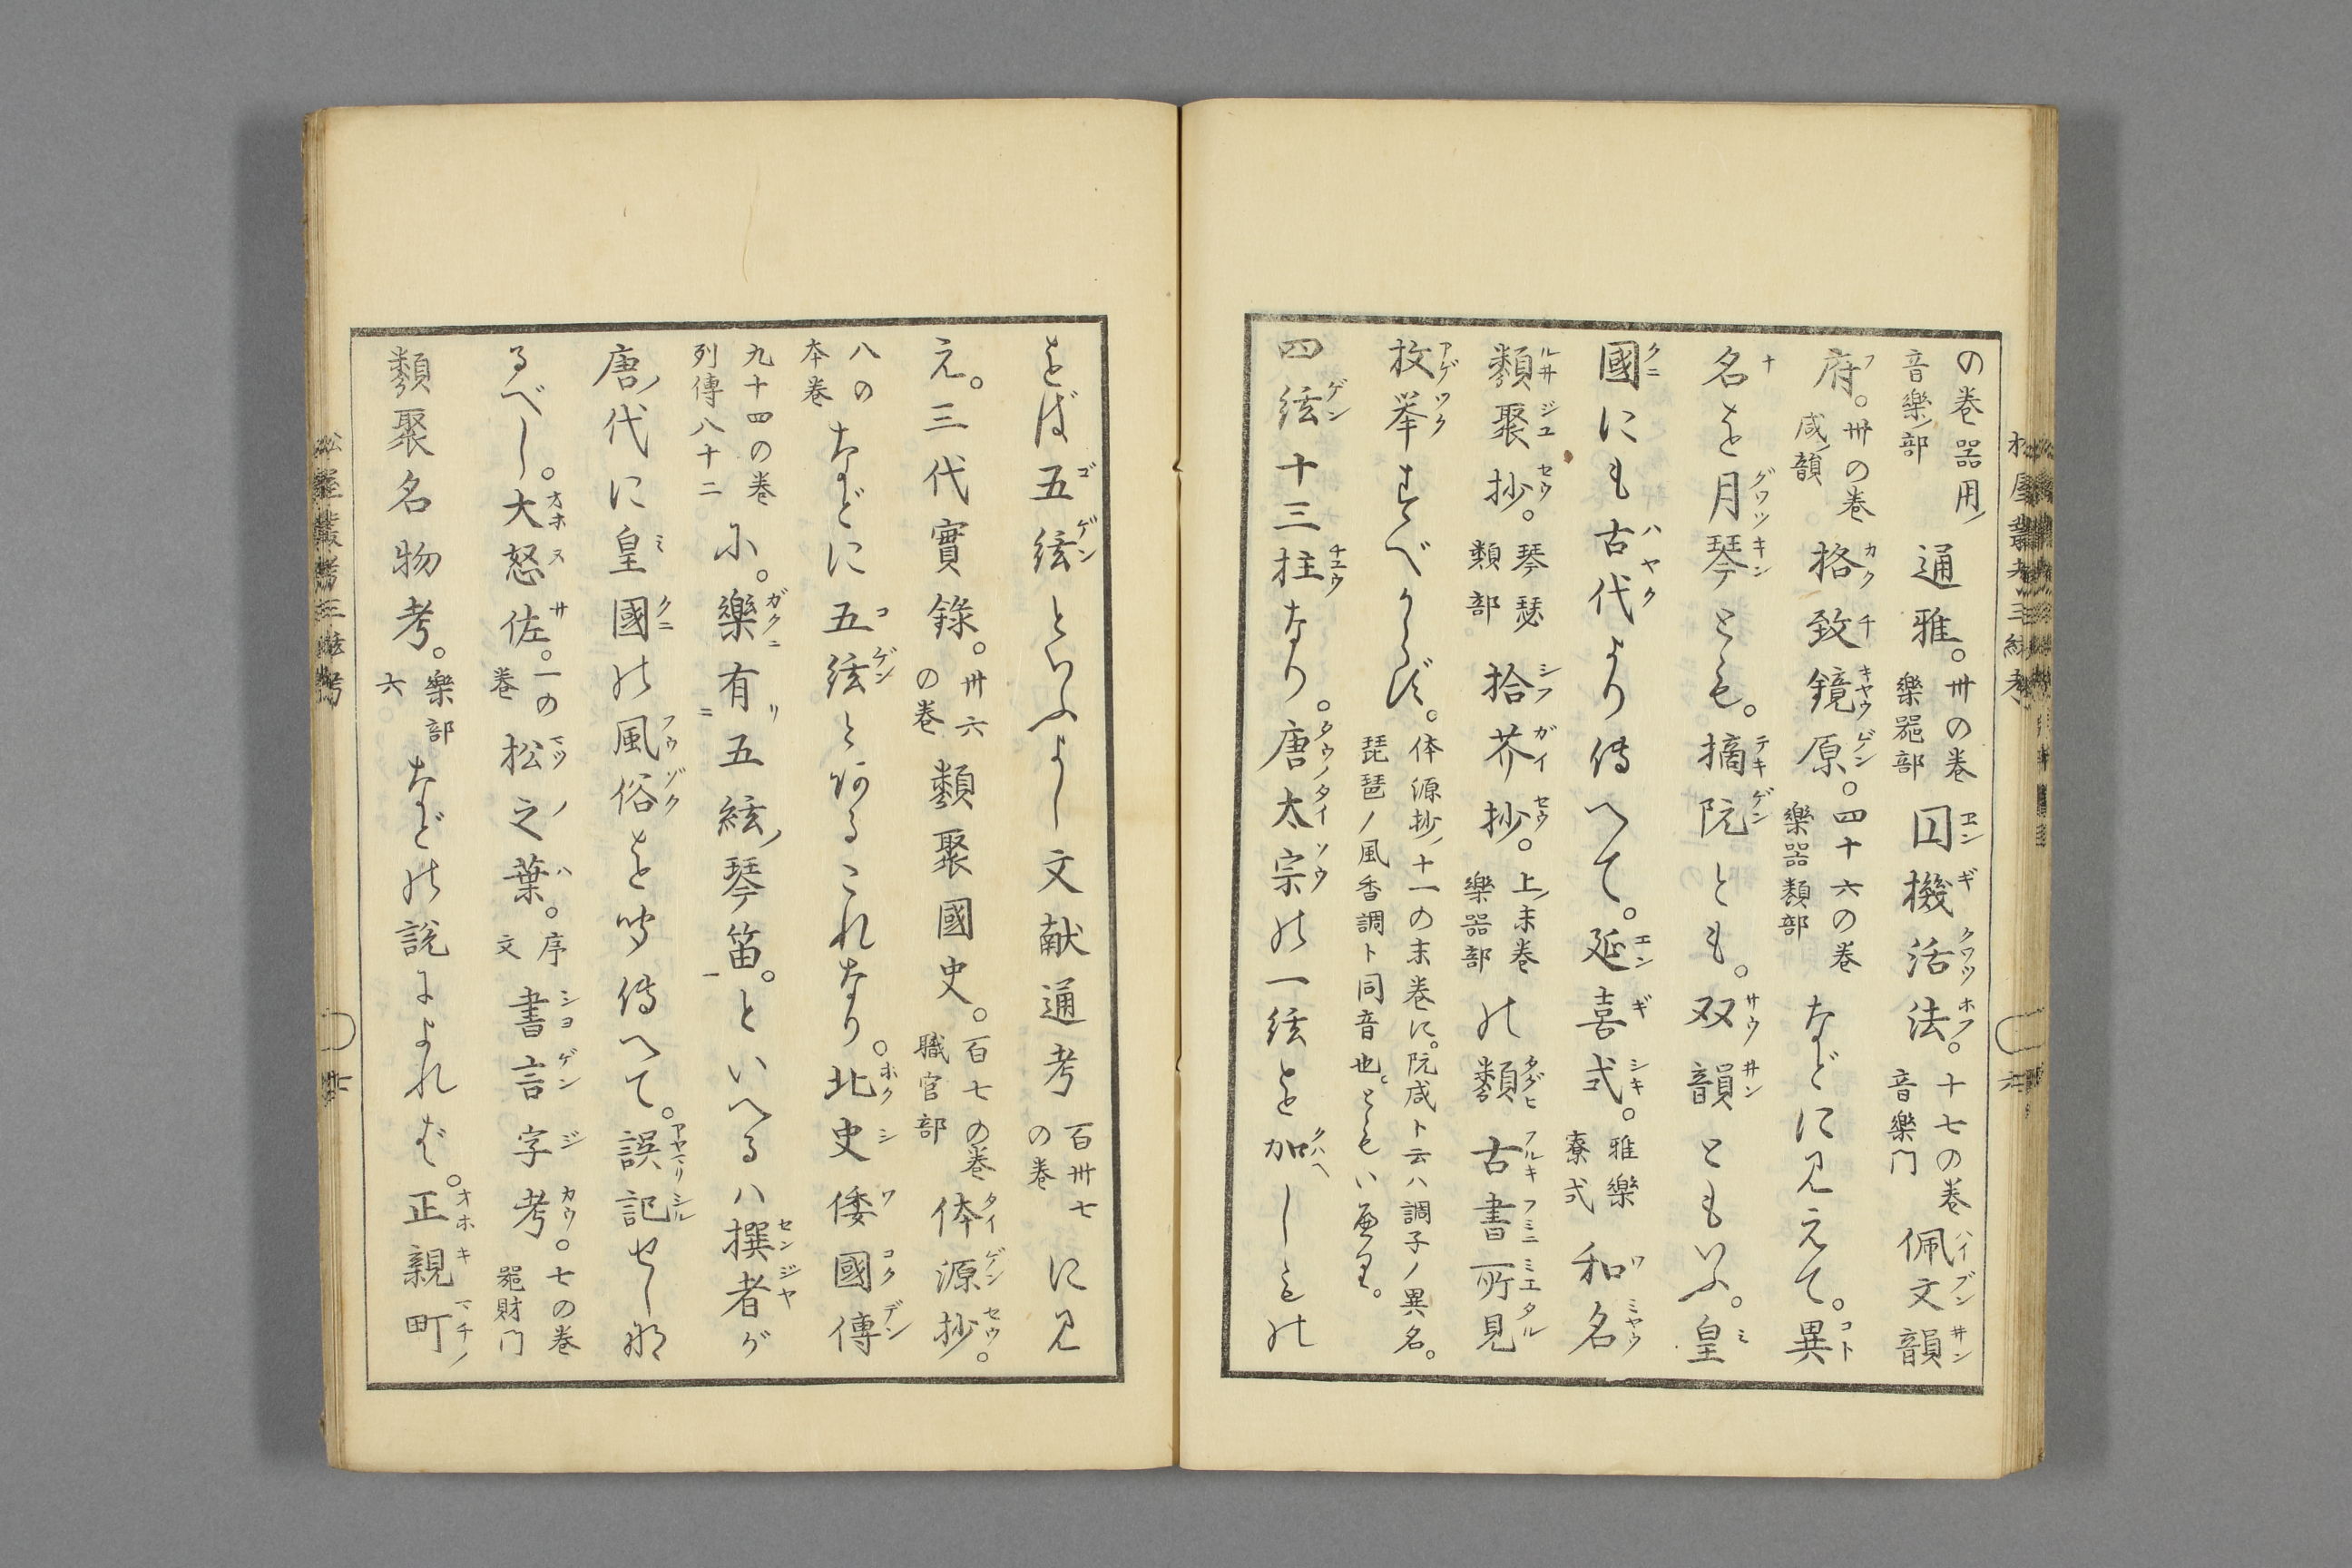 の巻器用ノ音樂ノ部通雅。卅の巻樂器部囦機活法。十七の巻音樂門佩文韻
府。卌の巻咸ノ韻格致鏡原。四十六の巻樂器類部などに見えて。異
名を月琴とも。摘阮とも。双韻ともいふ。皇
國にも古代より傳へて。延喜式。雅樂寮式和名
類聚抄。琴瑟類部拾芥抄。上ノ末巻樂器部の類古書所見
枚挙すべからず。体源抄ノ十一の末巻に。阮咸ト云ハ調子ノ異名。琵琶ノ風香調ト同音也。ともいへり。
四絃十三柱なり。唐太宗の一絃を加しもの
をば五絃といふよし文献通考百卅七の巻に見
え。三代實錄。卅六の巻類聚國史。百七の巻職官部体源抄。
八の本巻などに五絃とあるこれなり。北史倭國傳
九十四の巻列傳八十二に。樂有五絃ノ琴笛。といへるハ撰者が
唐ノ代に皇國の風俗を聞傳へて。誤記せしな
るべし。大怒佐。一の巻松之葉。序文書言字考。七の巻器財門
類聚名物考。樂部六などの説によれば。正親町